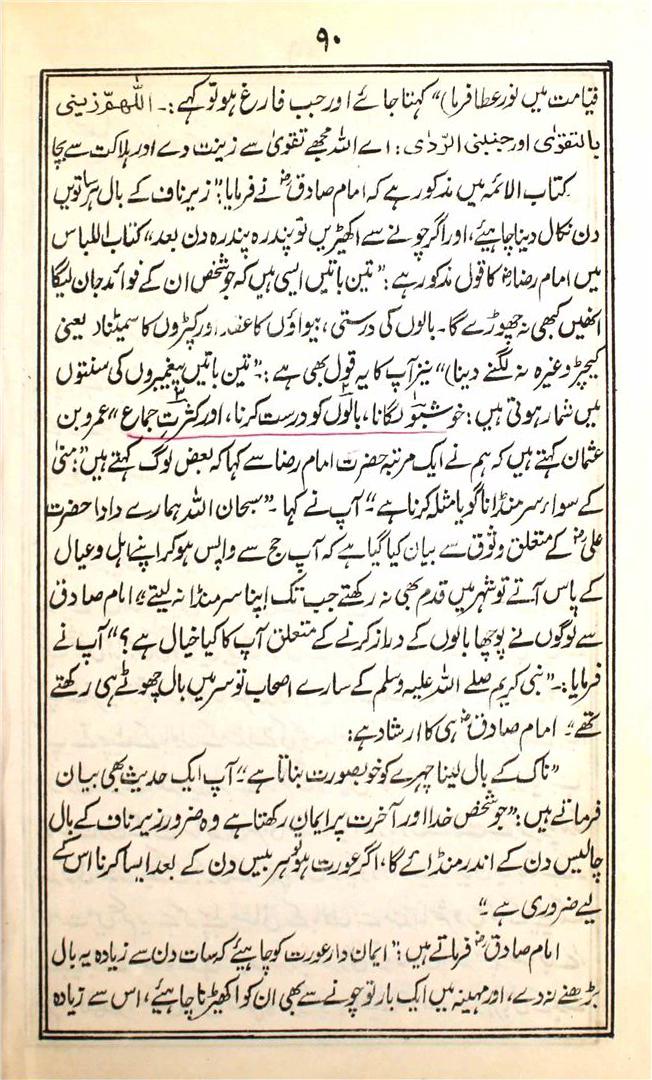 ۹۰
قیامت میں نور عطا فرما)“ کہتا جائے اور جب فارغ ہو تو کہے :۔ اللّٰھم زینی
بالتقوٰی اور جنبنی الرّدٰی : اے اللہ مجھے تقویٰ سے زینت دے اور ہلاکت سے بچا
کتاب الائمہ میں مذکور ہے کہ امام صادقؓ نے فرمایا: ”زیر ناف کے بال ہر ساتویں
دن نکال دینا چاہیئے، اور اگر چونے سے اکھیڑیں تو پندرہ پندرہ دن بعد“ کتاب اللباس
میں امام رضاؓ کا قول مذکور ہے :”تین باتیں ایسی ہیں کہ جو شخص ان کے فوائد جان لیگا
انھیں کبھی نہ چھوڑے گا۔ بالوں کی درستی، بیواؤں کا عقد اور کپڑوں کا سمیٹنا (یعنی
کیچڑ وغیرہ نہ لگنے دینا)“ نیز آپ کا یہ قول بھی ہے :۔”تین باتیں پیغمبروں کی سنتوں
میں شمار ہوتی ہیں : خوشبو لگانا، بالوں کو درست کرنا، اور کثرتِ جماع“ عمرو بن
عثمان کہتے ہیں کہ ہم نے ایک مرتبہ حضرت امام رضا سے کہا کہ بعض لوگ کہتے ہیں ”منیٰ
کے سواء سر منڈانا گویا مثلہ کرنا ہے“ آپ نے کہا ۔”سبحان اللہ ہمارے دادا حضرت
علیؓ کے متعلق وثوق سے بیان کیا گیا ہے کہ آپ حج سے واپس ہو کر اپنے اہل و عیال
کے پاس آتے تو شہر میں قدم بھی نہ رکھتے جب تک اپنا سر منڈا نہ لیتے“ امام صادق
سے لوگوں نے پوچھا بالوں کے دراز کرنے کے متعلق آپ کا کیا خیال ہے؟“ آپ نے
فرمایا :۔”نبی کریم صلے اللہ علیہ وسلم کے سارے اصحاب تو سر میں بال چھوٹے ہی رکھتے
تھے“ امام صادقؓ ہی کا ارشاد ہے :
”ناک کے بال لینا چہرے کو خوبصورت بناتا ہے“ آپ ایک حدیث بھی بیان
فرماتے ہیں :”جو شخص خدا اور آخرت پر ایمان رکھتا ہے وہ ضرور زیر ناف کے بال
چالیس دن کے اندر منڈائے گا، اگر عورت ہو تو ہر بیس دن کے بعد ایسا کرنا اس کے
لیے ضروری ہے“
امام صادقؓ فرماتے ہیں :”ایمان دار عورت کو چاہیئے کہ سات دن سے زیادہ یہ بال
بڑھنے نہ دے، اور مہینہ میں ایک بار تو چونے سے بھی ان کو اکھیڑنا چاہیئے، اس سے زیادہ